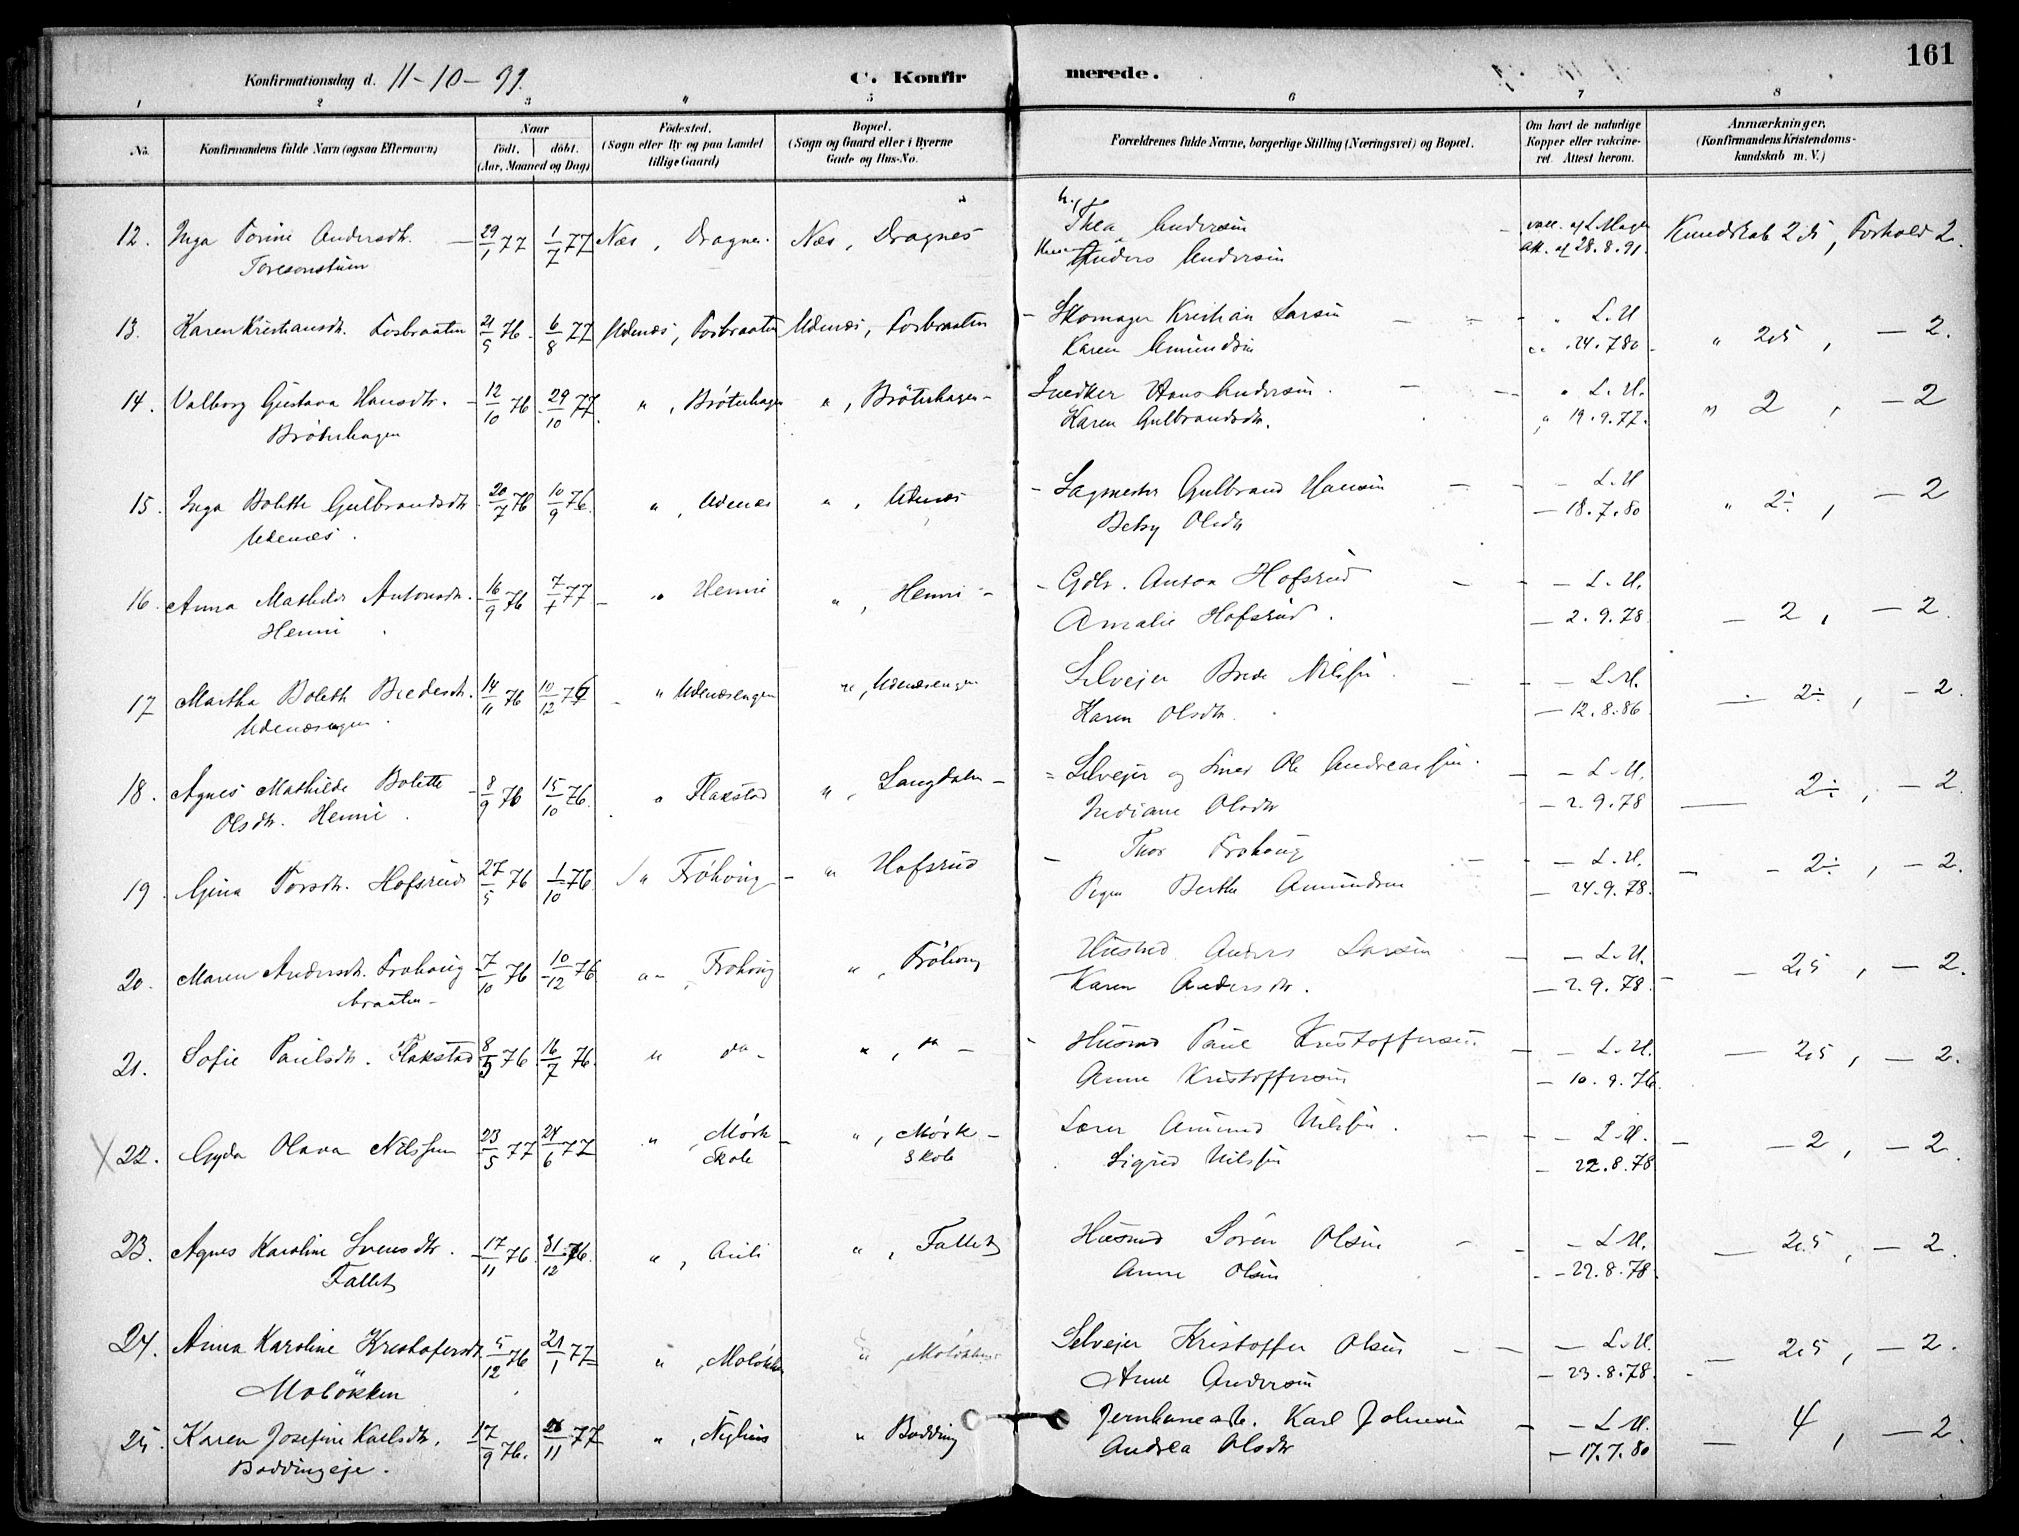 161
Konfirmationsdag d. 11-10-91.
C. Konfirmerede.
1 2 3 4 5 6 7 8
No.
Konfirmandens fulde Navn (ogsaa Efternavn)
Naar
födt. döbt.
(Aar, Maaned og Dag)
Födested.
(Sogn eller By og paa Landet
tillige Gaard)
Bopæl.
(Sogn og Gaard eller i Byerne
Gade og Hus-No.
Forældrenes fulde Navne, borgerlige Stilling (Næringsvei) og Bopæl.
Om havt de naturlige
Kopper eller vakcine-
ret. Attest herom.
Anmærkninger.
(Konfirmandens Kristendoms-
kundskab m. V.)
12. Inga Torine Andersdtr. 29/1 77 1/7 77 Næs, Dragnes. Næs, Dragnes Thea Andersen vacc. af L. Kundskab 2,5, Forhold 2.
Anders Andersen Att. af 28.8.91.
13. Karen Kristiansdtr. Fosbraaten 21/5 76. 6/8 77 Udenæs, Fosbraaten Udenæs, Fosbraaten - Skomager Kristian Larsen " L.U " 2,5, - 2.
Karen Amundsen " 24.7 80
14. Valborg Gustava Hansdtr. 12/10 76 29/10 77. ", Bröterhagen ", Bröterhagen - Snedker Hans Andersen. " L.U. " 2, - 2
Bröterhagen Karen Gulbrandsdtr. " 19.9.77.
15. Inga Bolette Gulbrandsdtr 20/7 76 10/9 76. ", Udenæs ", Udenæs - Sagmester Gulbrand Hansen - L.U " 2÷, - 2
Udenæs. Betsy Olsdtr - 18.7.80
16. Anna Mathilde Antonsdtr. 16/9 76 7/1 77 " Henni ", Henni - - Gdbr. Anton Hofsrud - L.U. - 2, - 2
Henni Amalie Hofsrud. - 2.9.78
17 Martha Boleth Bredesdtr. 14/11 76 10/12 76 " Udenæsengen ", Udenæsengen Selveier Brede Nilsen - L.U. - 2÷, - 2.
Udenæsengen. Karen Olsdtr. - 12.8.86
18. Agnes Mathilde Bolette 8/9 76 15/10 76. " Flakstad ", Langdalen - Selveier og Smed Ole Andreassen. - L.U. 2÷, - 2.
Olsdtr. Henni. Indiane Olsdtr - 2.9.78
19. Gina Torsdtr. Hofsrud 27/5 76 1/10 76. " Fröhoug - " Hofsrud Thor Frohoug - L.U. - 2÷, - 2.
Pigen Berthe Amundsen - 24.9.78.
20. Maren Andersdtr. Frohoug 7/10 76 10/12 76 " Frohoug ", Fröhoug Husmd Anders Larsen - L.U. - 2,5, - 2.
braaten - Karen Andersdtr. - 2.9.78.
21. Sofie Paulsdtr. Flakstad 8/5 76. 16/7 76. " do - ", do - - Husmd Paul Kristoffersen. - L.U. - 2,5, - 2.
Anne Kristoffersen - 10.9.76
X 22. Gyda Olava Nilssen 23/5 77 24/6 77 ", Mörk - ", Mörk - Lærer Amund Nilsen. - L.U. - 2, - 2.
Skole Skole Sigrid Nilsen - 22.8.78
23. Agnes Karoline Svensdtr. 17/11 76. 31/12 76. ", Auli ", Fallet Husmd Sören Olsen - L.U. - 2,5, - 2.
Fallet Anne Olsen - 22.8.78.
24. Anna Karoline Kristofersdtr. 5/12 76 21/1 77 ", Molökken ", Molökken Selveier Kristoffer Olsen - L.U. - 2,5, - 2.
Molökken Anne Andersen - 23.8.78.
25. Karen Josefine Karlsdtr. 17/9 76. 11 77 ", " Bodding Jernbanearb. Karl Johnsen - L.U. - 4, - 2.
Boddingeje. Andrea Olsdtr - 17.7.80